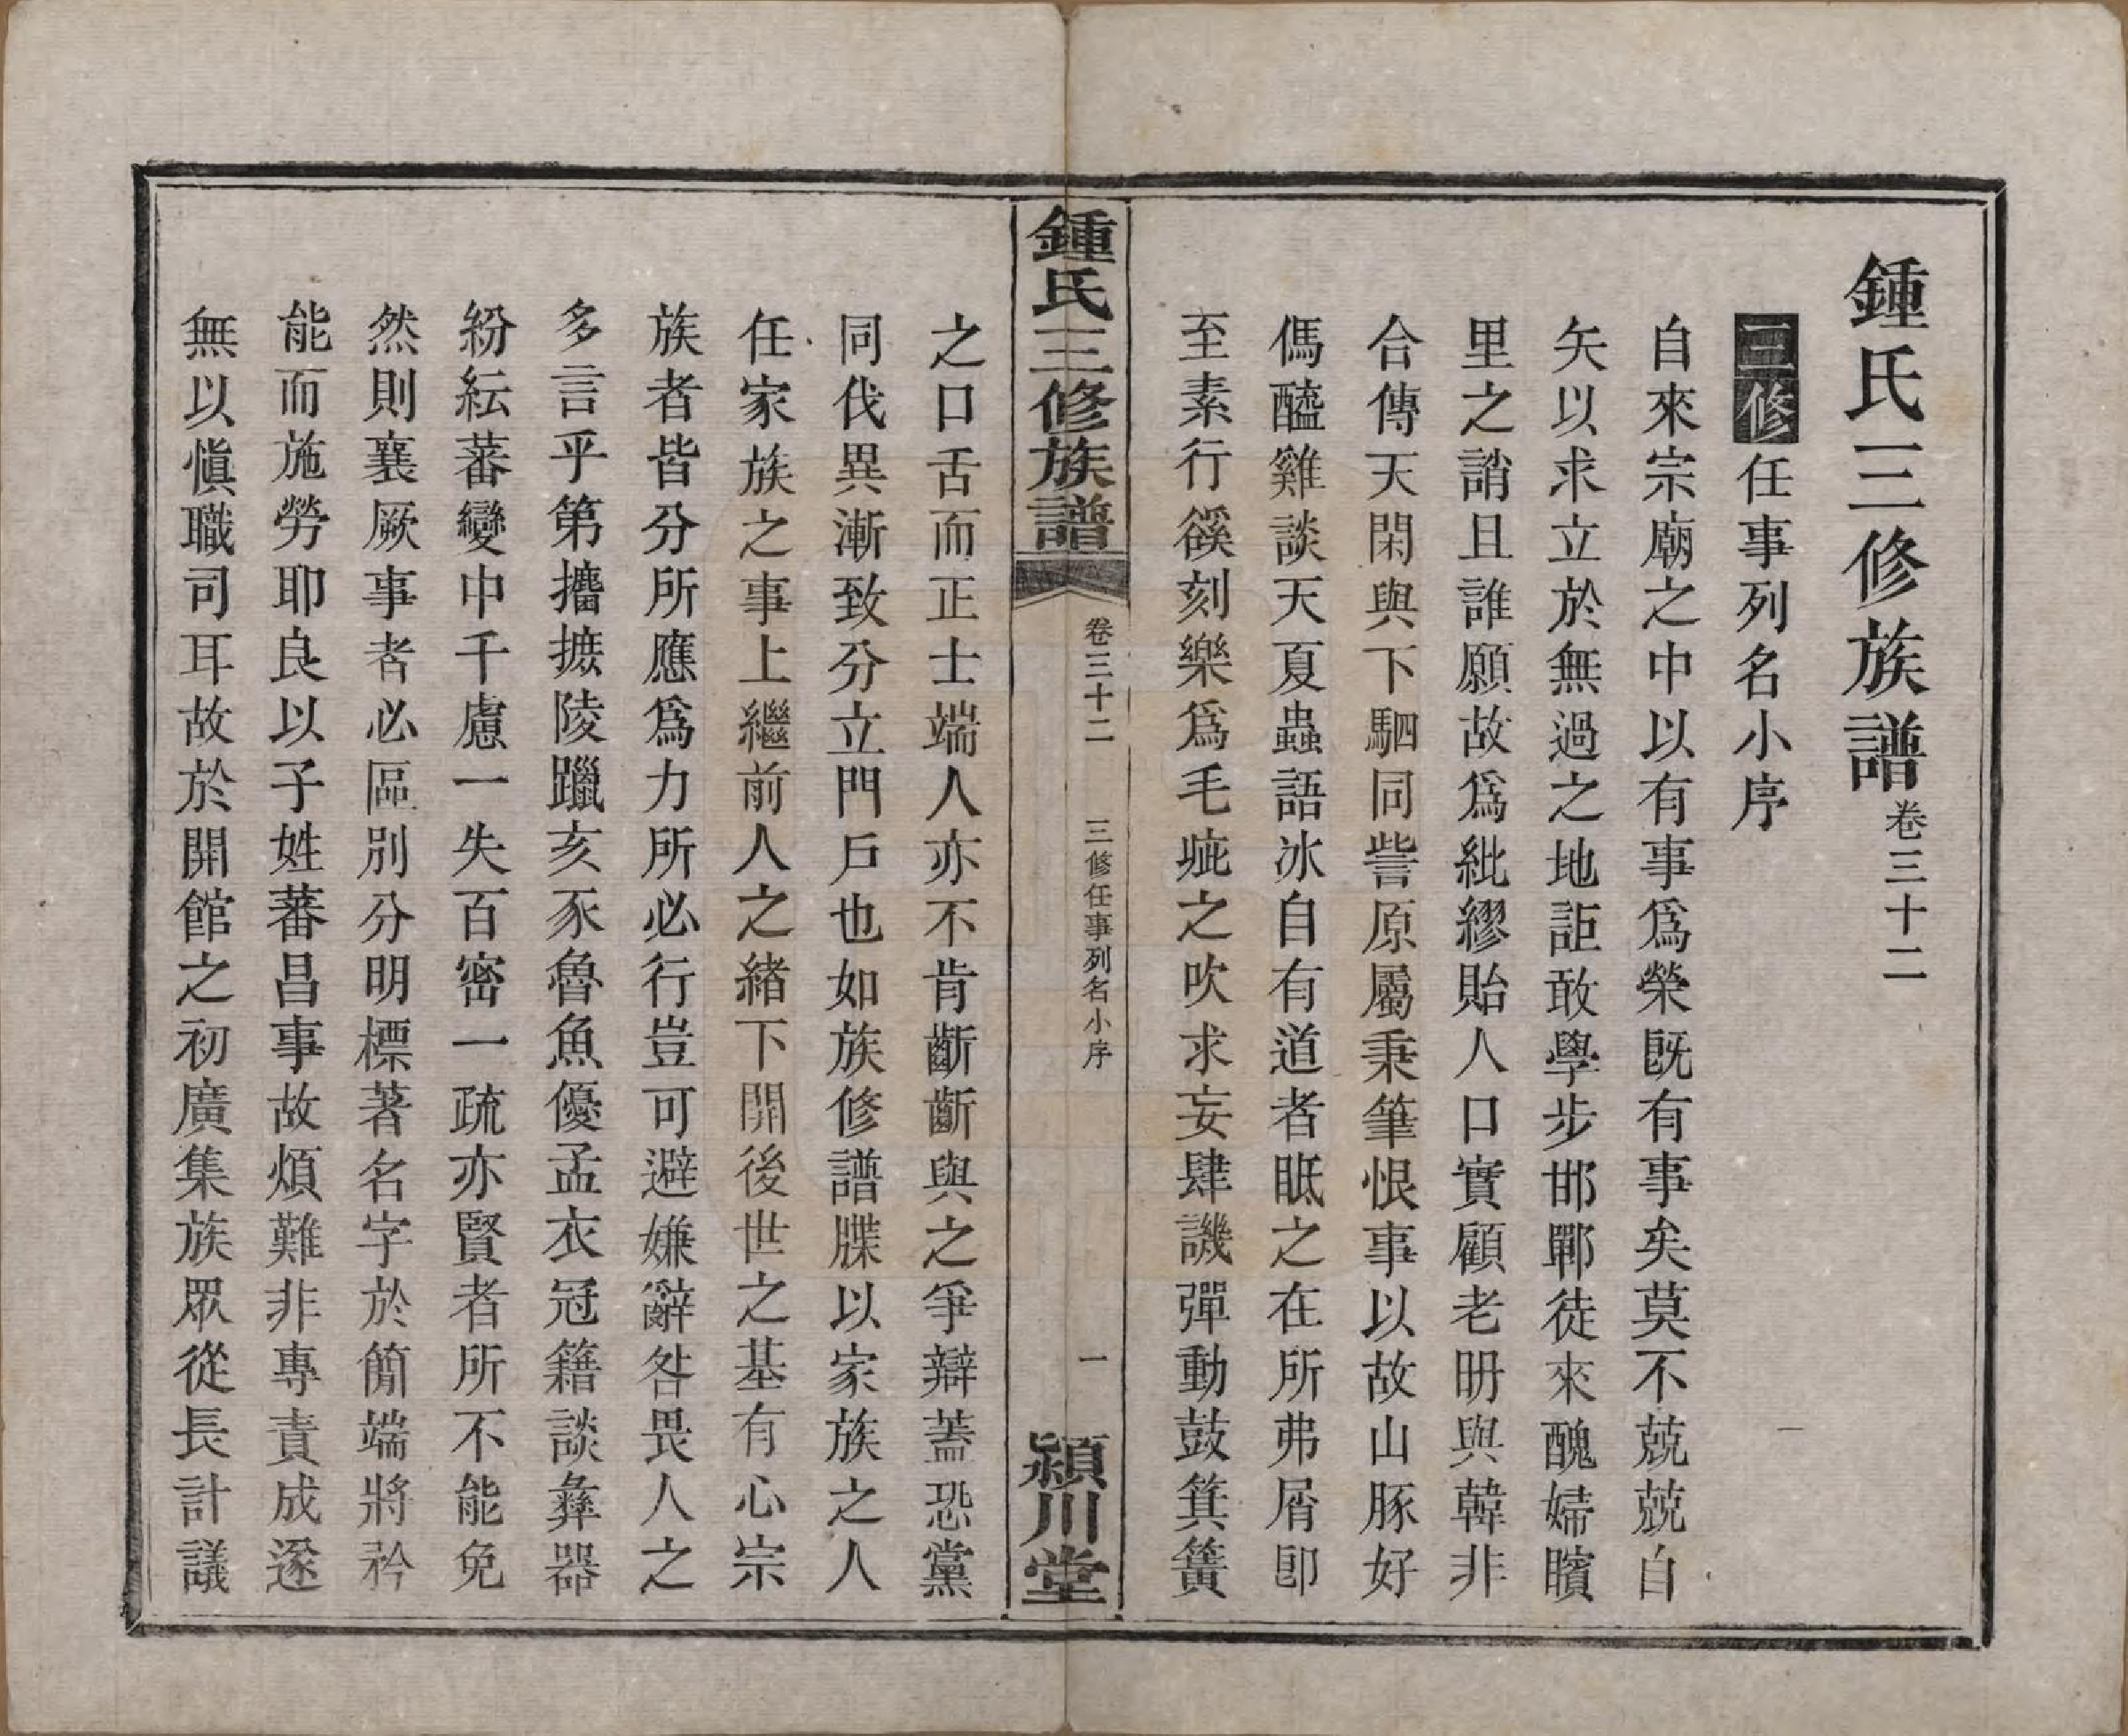 鍾氏三修族譜卷三十二
三修任事列名小序
自來宗廟之中以有事爲榮既有事矣莫不兢兢自
矢以求立於無過之地詎敢學步邯鄲徒來醜婦矉
里之誚且誰願故爲紕繆貽人口實顧老聃與韓非
合傳天閑與下駟同訾原屬秉筆恨事以故山豚好
傌醯雞談天夏蟲語冰自有道者眡之在所弗屑卽
至素行徯刻樂爲毛疵之吹求妄肆譏彈動鼓箕簧
鍾氏三修族譜 卷三十二 三修任事列名小序 一 潁川堂
之口舌而正士端人亦不肯齗齗與之爭辯蓋恐黨
同伐異漸致分立門戶也如族修譜牒以家族之人
任家族之事上繼前人之緒下開後世之基有心宗
族者皆分所應爲力所必行豈可避嫌辭咎畏人之
多言乎第攟摭陵躐亥豕魯魚優孟衣冠籍談彝器
紛紜蕃變中千慮一失百密一疏亦賢者所不能免
然則襄厥事者必區別分明標著名字於簡端將矜
能而施勞耶良以子姓蕃昌事故煩難非專責成遂
無以愼職司耳故於開館之初廣集族眾從長計議